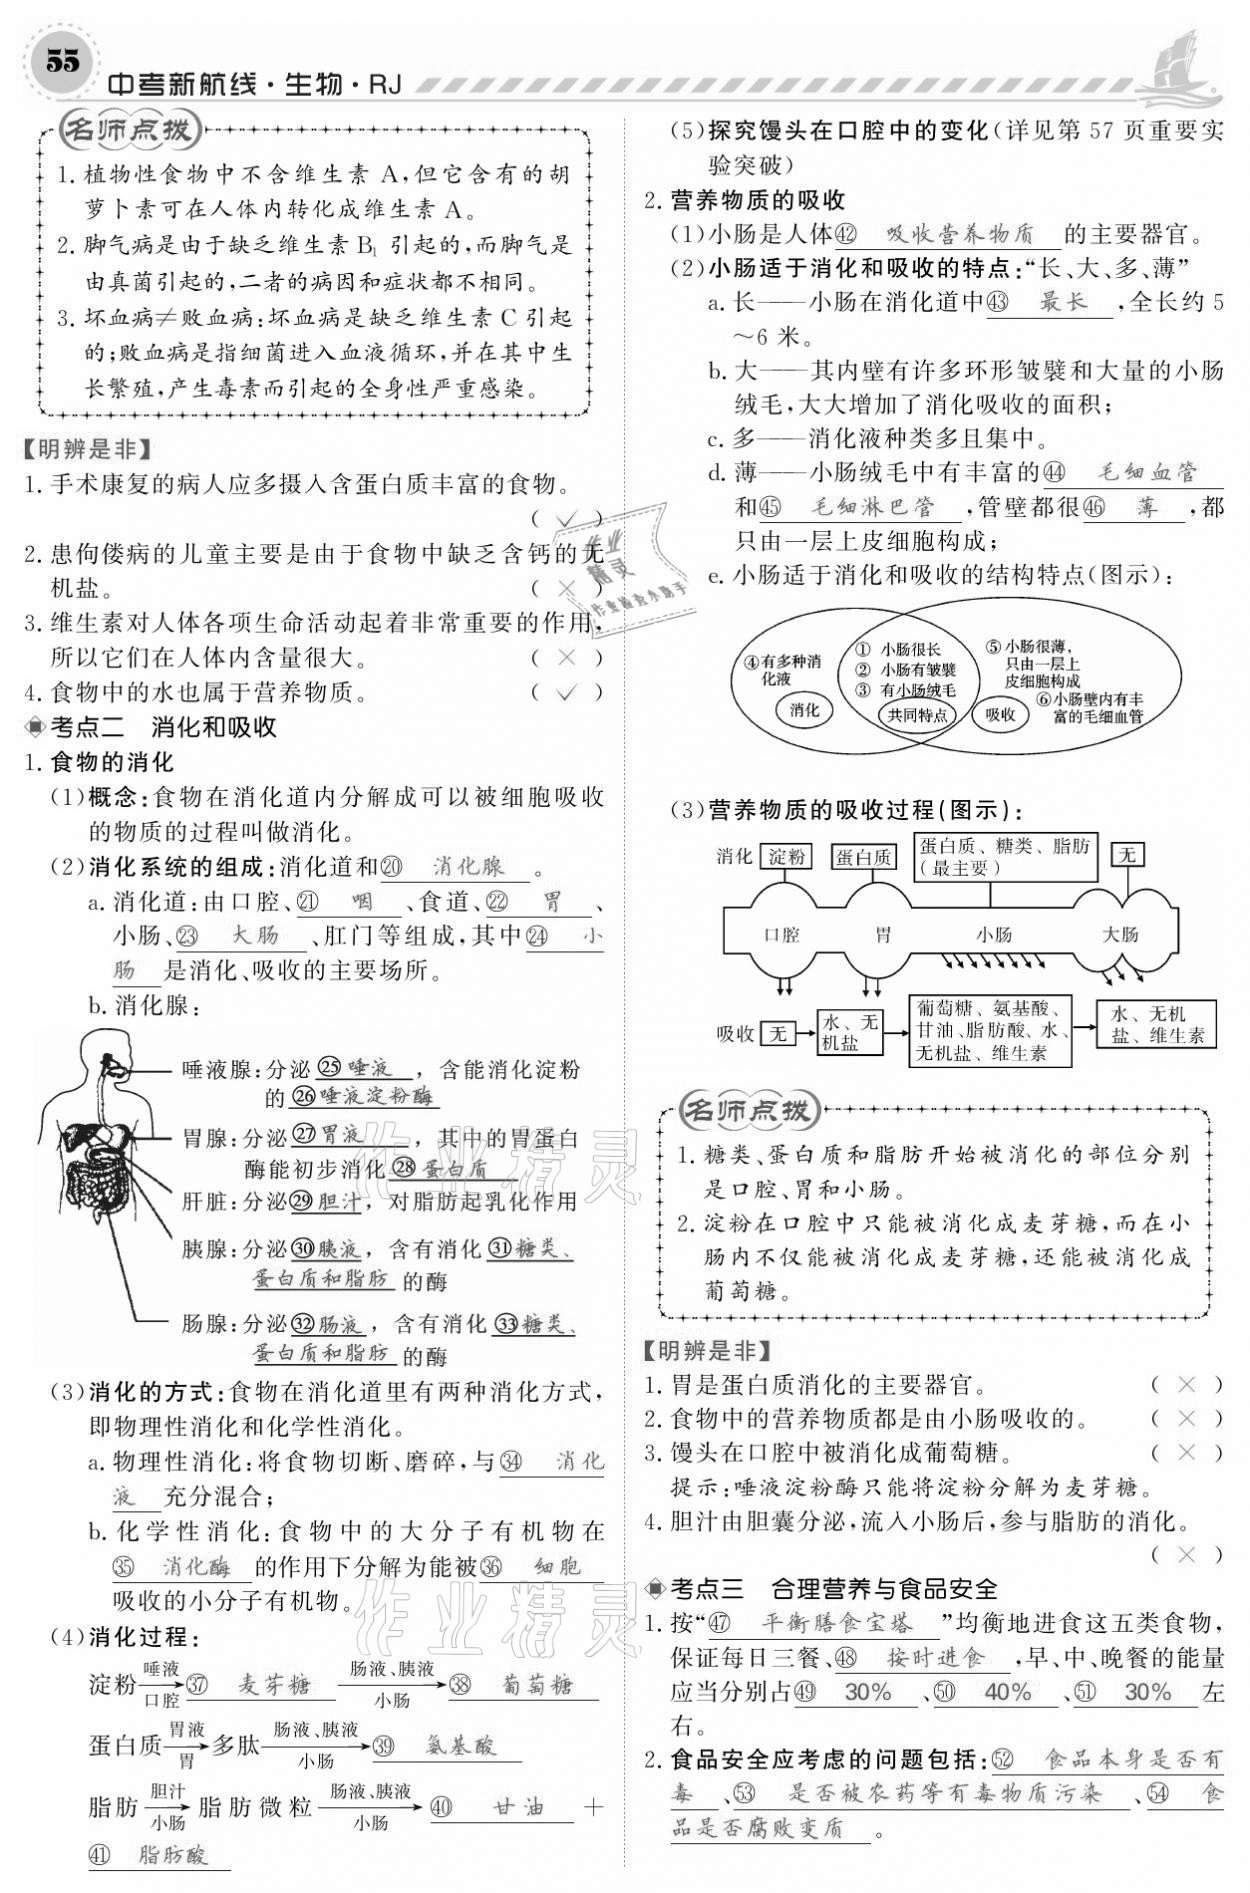 55
中考新航线·生物·RJ
名师点拨
1. 植物性食物中不含维生素 A,但它含有的胡
萝卜素可在人体内转化成维生素 A。
2. 脚气病是由于缺乏维生素 B₁ 引起的,而脚气是
由真菌引起的,二者的病因和症状都不相同。
3. 坏血病≠败血病:坏血病是缺乏维生素 C 引起
的;败血病是指细菌进入血液循环,并在其中生
长繁殖,产生毒素而引起的全身性严重感染。
【明辨是非】
1. 手术康复的病人应多摄入含蛋白质丰富的食物。
( ✓ )
2. 患佝偻病的儿童主要是由于食物中缺乏含钙的无
机盐。 ( × )
3. 维生素对人体各项生命活动起着非常重要的作用,
所以它们在人体内含量很大。 ( × )
4. 食物中的水也属于营养物质。 ( ✓ )
考点二 消化和吸收
1. 食物的消化
(1)概念:食物在消化道内分解成可以被细胞吸收
的物质的过程叫做消化。
(2)消化系统的组成:消化道和⑳ 消化腺 。
a. 消化道:由口腔、㉑ 咽 、食道、㉒ 胃 、
小肠、㉓ 大肠 、肛门等组成,其中㉔ 小
肠 是消化、吸收的主要场所。
b. 消化腺:
唾液腺:分泌㉕唾液 ,含能消化淀粉
的㉖唾液淀粉酶
胃腺:分泌㉗胃液 ,其中的胃蛋白
酶能初步消化㉘蛋白质
肝脏:分泌㉙胆汁,对脂肪起乳化作用
胰腺:分泌㉚胰液,含有消化㉛糖类、
蛋白质和脂肪 的酶
肠腺:分泌㉜肠液 ,含有消化㉝糖类、
蛋白质和脂肪 的酶
(3)消化的方式:食物在消化道里有两种消化方式,
即物理性消化和化学性消化。
a. 物理性消化:将食物切断、磨碎,与㉞ 消化
液 充分混合;
b. 化学性消化:食物中的大分子有机物在
㉟ 消化酶 的作用下分解为能被㊱ 细胞
吸收的小分子有机物。
(4)消化过程:
唾液 肠液、胰液
淀粉→㊲ 麦芽糖 →㊳ 葡萄糖
口腔 小肠
胃液 肠液、胰液
蛋白质→多肽→㊴ 氨基酸
胃 小肠
胆汁 肠液、胰液
脂肪→脂肪微粒→㊵ 甘油 +
小肠 小肠
㊶ 脂肪酸
(5)探究馒头在口腔中的变化(详见第 57 页重要实
验突破)
2. 营养物质的吸收
(1)小肠是人体㊷ 吸收营养物质 的主要器官。
(2)小肠适于消化和吸收的特点:“长、大、多、薄”
a. 长——小肠在消化道中㊸ 最长 ,全长约 5
～6 米。
b. 大——其内壁有许多环形皱襞和大量的小肠
绒毛,大大增加了消化吸收的面积;
c. 多——消化液种类多且集中。
d. 薄——小肠绒毛中有丰富的㊹ 毛细血管
和㊺ 毛细淋巴管 ,管壁都很㊻ 薄 ,都
只由一层上皮细胞构成;
e. 小肠适于消化和吸收的结构特点(图示):
④有多种消
化液
消化
① 小肠很长
② 小肠有皱襞
③ 有小肠绒毛
共同特点
⑤小肠很薄,
只由一层上
皮细胞构成
⑥小肠壁内有丰
富的毛细血管
吸收
(3)营养物质的吸收过程(图示):
消化 淀粉 蛋白质 蛋白质、糖类、脂肪
(最主要) 无
口腔 胃 小肠 大肠
吸收 无
水、无
机盐
葡萄糖、氨基酸、
甘油、脂肪酸、水、
无机盐、维生素
水、无机
盐、维生素
名师点拨
1. 糖类、蛋白质和脂肪开始被消化的部位分别
是口腔、胃和小肠。
2. 淀粉在口腔中只能被消化成麦芽糖,而在小
肠内不仅能被消化成麦芽糖,还能被消化成
葡萄糖。
【明辨是非】
1. 胃是蛋白质消化的主要器官。 ( × )
2. 食物中的营养物质都是由小肠吸收的。 ( × )
3. 馒头在口腔中被消化成葡萄糖。 ( × )
提示:唾液淀粉酶只能将淀粉分解为麦芽糖。
4. 胆汁由胆囊分泌,流入小肠后,参与脂肪的消化。
( × )
考点三 合理营养与食品安全
1. 按“㊼ 平衡膳食宝塔 ”均衡地进食这五类食物,
保证每日三餐、㊽ 按时进食 ,早、中、晚餐的能量
应当分别占㊾ 30% 、㊿ 40% 、51 30% 左
右。
2. 食品安全应考虑的问题包括:52 食品本身是否有
毒 、53 是否被农药等有毒物质污染 、54 食
品是否腐败变质 。
作业精灵
作业检查小助手
作业精灵
作业精灵